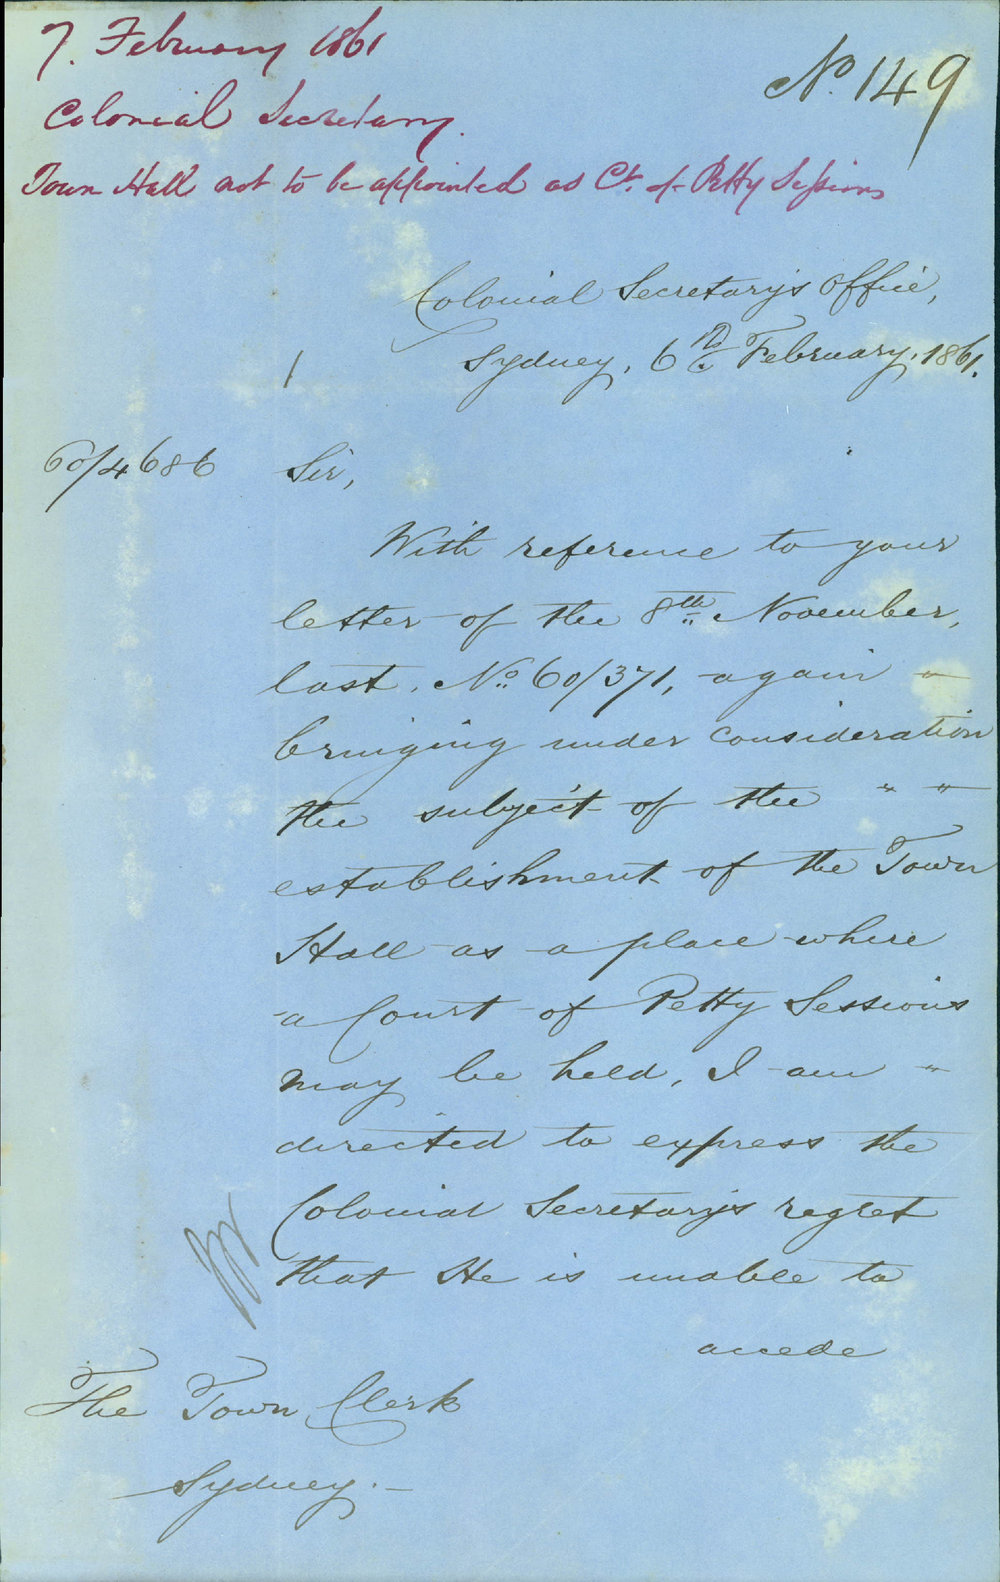 7. February 1861
No. 149
Colonial Secretary.
Town Hall not to be appointed as Ct. of Petty Sessions
Colonial Secretary's Office,
Sydney, 6th February, 1861.
60/4686
Sir,
With reference to your
letter of the 8th November,
last, No. 60/371, again
bringing under consideration
the subject of the " "
establishment of the Town
Hall as a place where
a Court of Petty Sessions
may be held, I am "
directed to express the
Colonial Secretary's regret
that He is unable to
accede
The Town Clerk
Sydney.